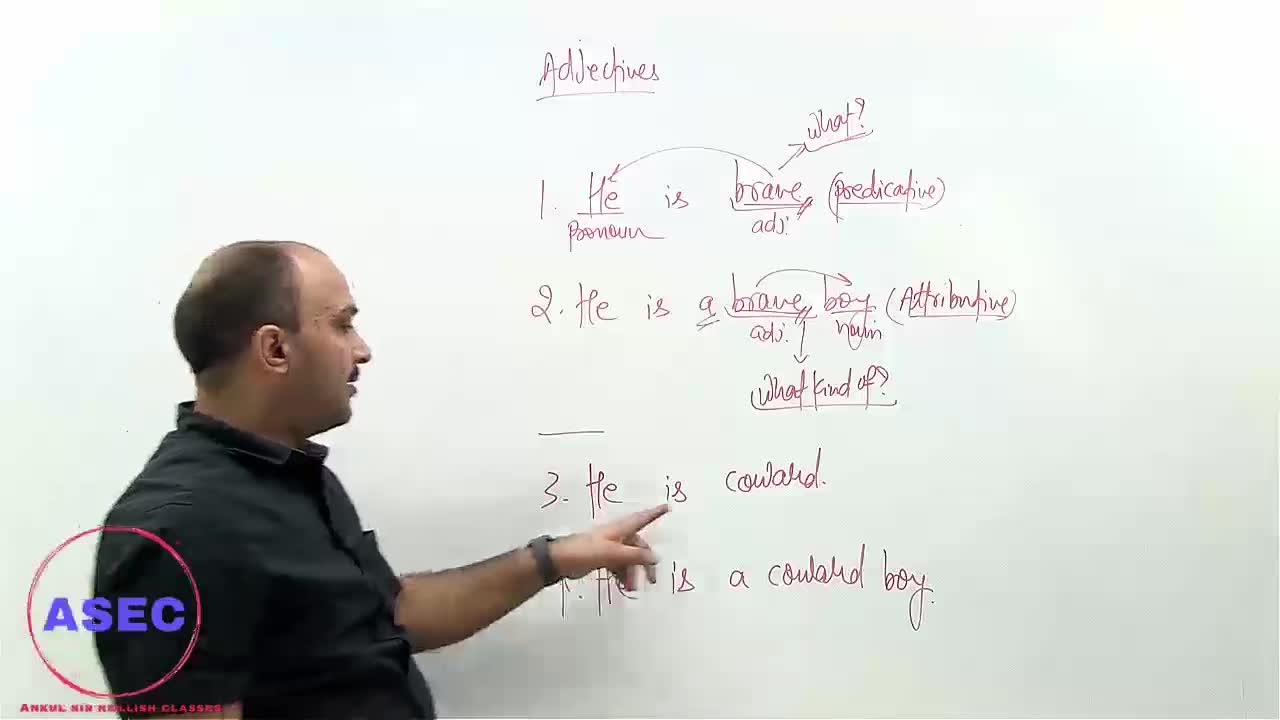 Adjectives
what?
1. He is brave (predicative)
pronoun adj.
2. He is a brave boy (Attributive)
adj. noun
What kind of?
3. He is coward.
He is a coward boy.
ASEC
ANKUL SIR ENGLISH CLASSES